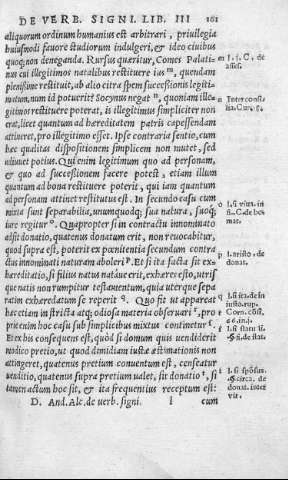 DE VERB. SIGNI. LIB. III 161
aliquorum ordinum humanius est arbitrari, priuilegia
huiusmodi fauore studiorum indulgeri, & ideo ciuibus
quoq; non deneganda. Rursus quæritur, Comes Palati-
nus cui illegitimos natalibus restituere ius m, quendam
plenissime restituit, ab alio citra spem successionis legiti-
matum, num id potuerit? Socynus negat n, quoniam ille
gitimos restituere poterat, is illegitimus simpliciter non
erat, licet quantum ad hæreditatem patris capessendam
attineret, pro illegitimo esset. Ipse contraria sentio, cum
hæc qualitas dispositionem simplicem non mutet, sed
adiuuet potius. Qui enim legitimum quo ad personam,
& quo ad successionem facere potest, etiam illum
quantum ad bona restituere poterit, qui iam quantum
ad personam attinet restitutus est. In secundo casu cum
mixta sunt separabilia, unumquodq; sua natura, suoq;
iure regitur o. Quapropter si in contractu innominato
adsit donatio, quatenus donatum erit, non reuocabitur,
quod supra est, poterit ex pœnitentia secundum contra
ctus innominati naturam aboleri p. Et si ita facta sit ex-
hæreditatio, si filius natus natáue erit, exhæres esto, utrisq
que natis non rumpitur testamentum, quia uterque sepa
ratim exhæredatum se reperit q. Quo fit ut appareat
hæc etiam in stricta atq; odiosa materia obseruari r, pro
prie enim hoc casu sub simplicibus mixtus continetur s.
Et ex his consequens est, quòd si domum quis uendiderit
modico pretio, ut quod dimidiam iustæ æstimationis non
attingeret, quatenus pretium conuentum est, censeatur
uenditio, quatenus supra pretium ualet, sit donatio t, si
tamen actum hoc sit, & ita frequentius receptum est:
D. And. Alc. de verb. signi. l cum
m l. j. C. de
n Inter consi-
lia. Cur.
o l. si vt in
p l. aristo. de
donat.
q l. si ita. de in
iusto. rup.
r
s
t l. si sposus.
§. circa. de
donat. inter
vir.